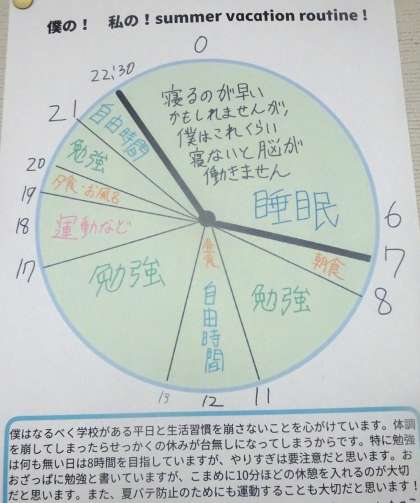 僕の! 私の! summer vacation routine!
0
22:30
寝るのが早い
かもしれませんが、
僕はこれくらい
寝ないと脳が
働きません
21
自由時間
勉強
20
夕食・お風呂
19
睡眠
6
18
運動など
昼食
朝食
7
17
勉強
自由時間
勉強
8
13
12
11
僕はなるべく学校がある平日と生活習慣を崩さないことを心がけています。体調
を崩してしまったらせっかくの休みが台無しになってしまうからです。特に勉強
は何も無い日は8時間を目指していますが、やりすぎは要注意だと思います。お
おざっぱに勉強と書いていますが、こまめに10分ほどの休憩を入れるのが大切
だと思います。また、夏バテ防止のためにも運動することも大切だと思います